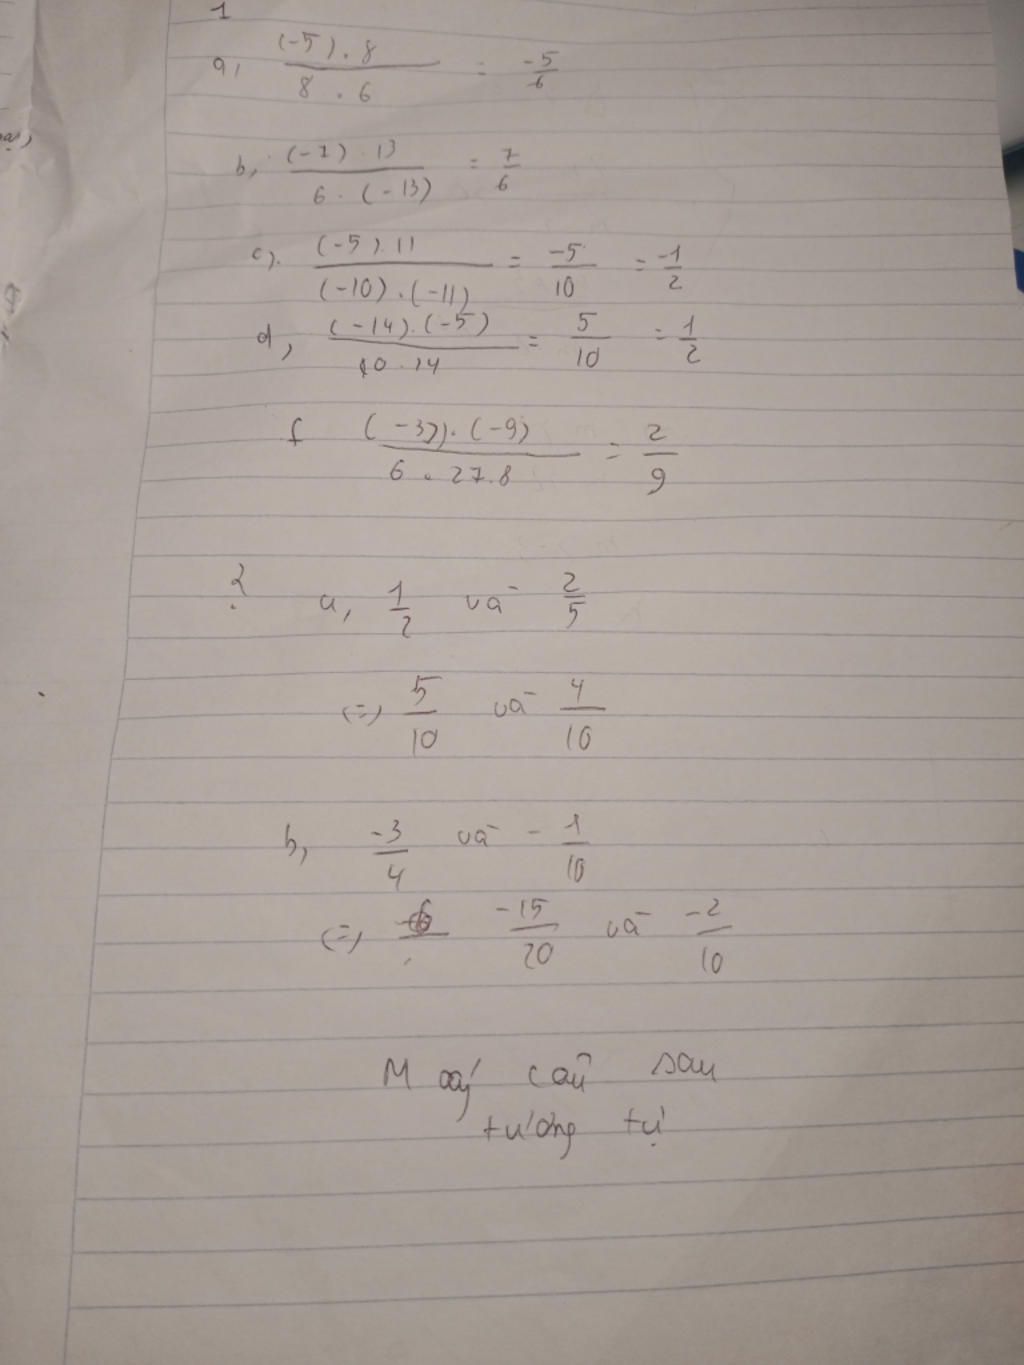 1
a, ((-5) . 8)/(8 . 6) = -5/6
b, ((-7) . 13)/(6 . (-13)) = 7/6
c). ((-5). 11)/((-10) . (-11)) = -5/10 = -1/2
d, ((-14). (-5))/(10 . 14) = 5/10 = 1/2
f ((-32). (-9))/(6 . 27.8) = 2/9
2. a, 1/2 và 2/5
(=) 5/10 và 4/10
b, -3/4 và - 1/10
(=) -15/20 và -2/10
Mấy câu sau
tương tự